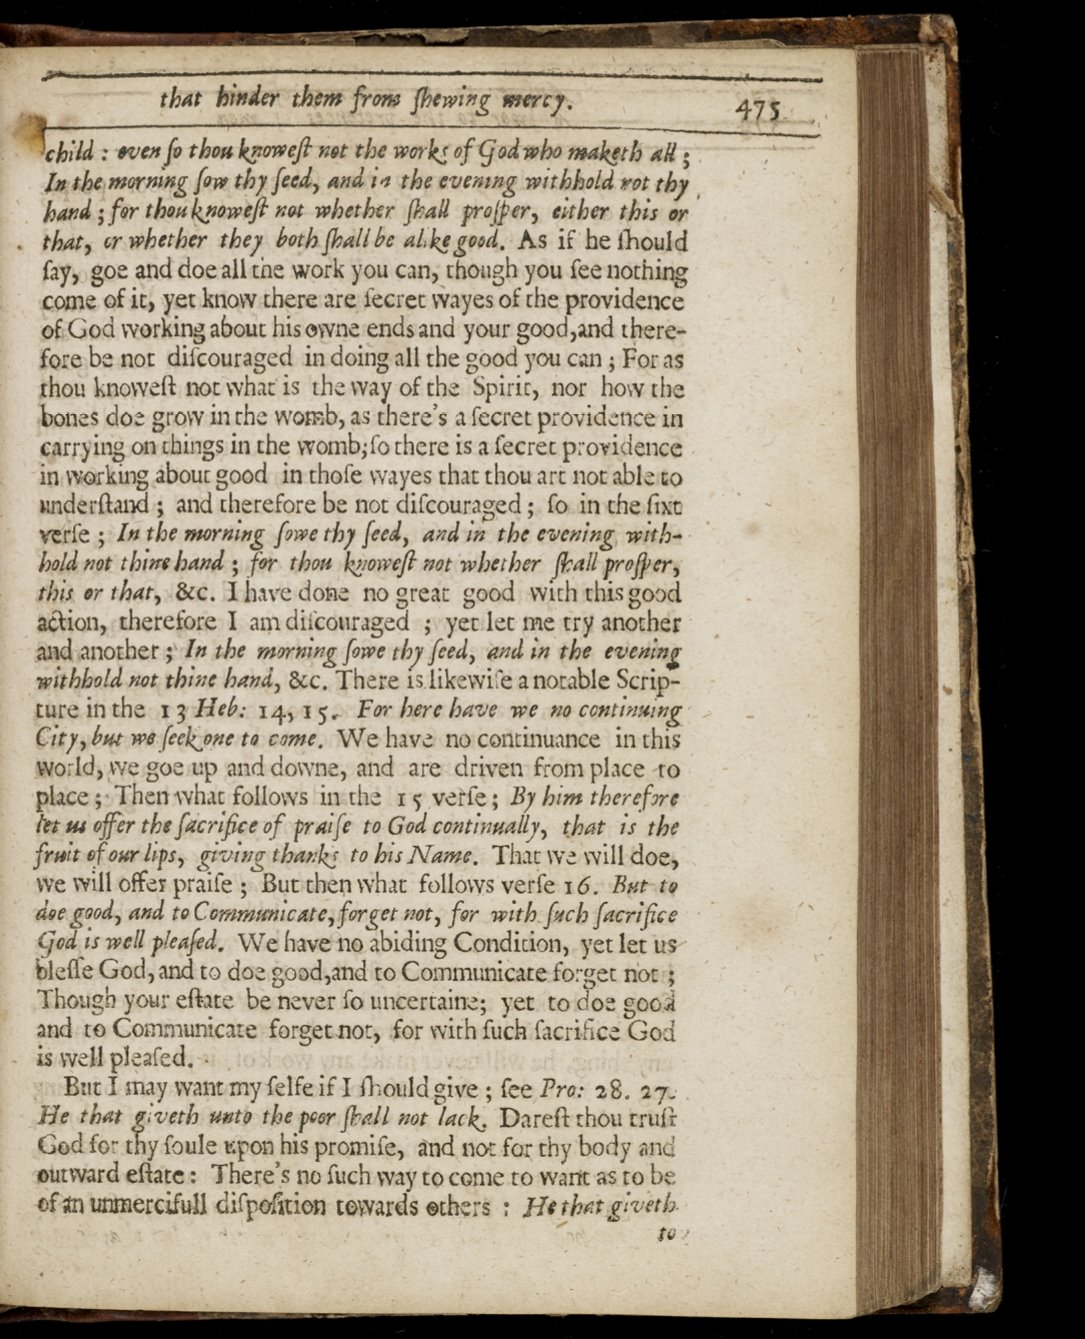 that hinder them from ſhewing mercy. 475
child : even ſo thou knoweſt not the works of God who maketh all ;
In the morning ſow thy ſeed, and in the evening withhold not thy
hand ; for thou knoweſt not whether ſhall proſper, either this or
that, or whether they both ſhall be alike good. As if he ſhould
ſay, goe and doe all the work you can, though you ſee nothing
come of it, yet know there are ſecret wayes of the providence
of God working about his owne ends and your good,and there-
fore be not diſcouraged in doing all the good you can ; For as
thou knoweſt not what is the way of the Spirit, nor how the
bones doe grow in the womb, as there's a ſecret providence in
carrying on things in the womb;ſo there is a ſecret providence
in working about good in thoſe wayes that thou art not able to
underſtand ; and therefore be not diſcouraged ; ſo in the ſixt
verſe ; In the morning ſowe thy ſeed, and in the evening with-
hold not thine hand ; for thou knoweſt not whether ſhall proſper,
this or that, &c. I have done no great good with this good
action, therefore I am diſcouraged ; yet let me try another
and another ; In the morning ſowe thy ſeed, and in the evening
withhold not thine hand, &c. There is likewiſe a notable Scrip-
ture in the 13 Heb: 14, 15. For here have we no continuing
City, but we ſeek one to come. We have no continuance in this
world, we goe up and downe, and are driven from place to
place ; Then what follows in the 15 verſe ; By him therefore
let us offer the ſacrifice of praiſe to God continually, that is the
fruit of our lips, giving thanks to his Name. That we will doe,
we will offer praiſe ; But then what follows verſe 16. But to
doe good, and to Communicate, forget not, for with ſuch ſacrifice
God is well pleaſed. We have no abiding Condition, yet let us
bleſſe God, and to doe good,and to Communicate forget not ;
Though your eſtate be never ſo uncertaine; yet to doe good
and to Communicate forget not, for with ſuch ſacrifice God
is well pleaſed.
But I may want my ſelfe if I ſhould give ; ſee Pro: 28. 27.
He that giveth unto the poor ſhall not lack. Dareſt thou truſt
God for thy ſoule upon his promiſe, and not for thy body and
outward eſtate : There's no ſuch way to come to want as to be
of an unmercifull diſpoſition towards others : He that giveth
to